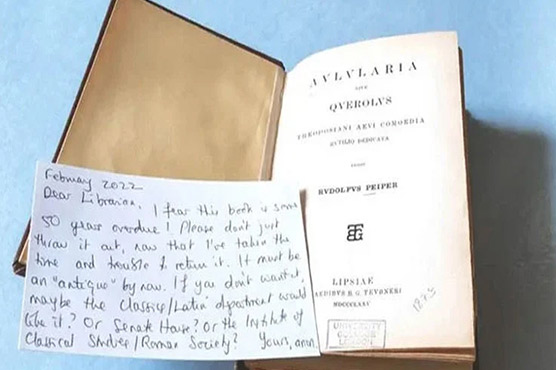 February 2022
Dear Librarian, I fear this book is some
50 years overdue! Please don't just
throw it out, now that I've taken the
time and trouble to return it. It must be
an "antique" by now. If you don't want it,
maybe the Classics/Latin department would
like it? Or Senate House? Or the Institute of
Classical Studies/Roman Society? Yours, anon.
AVLVLARIA
SIVE
QVEROLVS
THEODOSIANI AEVI COMOEDIA
RVTILIO DEDICATA
EDIDIT
RVDOLFVS PEIPER
LIPSIAE
AEDIBVS B. G. TEVBNERI
MDCCCLXXV
1875
UNIVERSITY
COLLEGE
LONDON